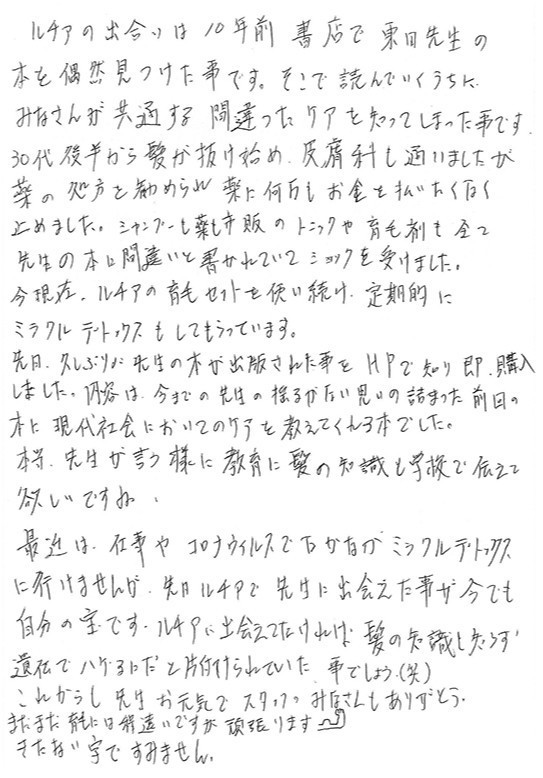 ルチアの出合いは10年前 書店で 東田先生の
本を偶然見つけた事です。そこで読んでいくうちに
みなさんが共通する 間違ったケアを知ってしまった事です.
30代後半から髪が抜け始め、皮膚科も通いましたが
薬の処方を勧められ 薬に何万もお金を払いたくなく
止めました。シャンプーも薬も市販のトニックや育毛剤も全て
先生の本に間違いと書かれていて ショックを受けました。
今現在、ルチアの育毛セットを使い続け、定期的に
ミラクルデトックスもしてもらっています。
先日、久しぶりに先生の本が出版された事をHPで知り 即、購入
しました。内容は、今までの先生の揺るがない思いの詰まった 前回の
本に現代社会においてのケアを教えてくれる本でした。
本当、先生が言う様に 教育に髪の知識も学校で伝えて
欲しいですね、
最近は、仕事や コロナウイルスでなかなか ミラクルデトックス
に行けませんが、先日ルチアで 先生に出会えた事が今でも
自分の宝です。ルチアに出会えてなければ 髪の知識も知らず
遺伝でハゲるにだと片付けられていた 事でしょう.(笑)
これからも 先生お元気で スタッフのみなさんもありがとう.
まだまだ 髪には程遠いですが 頑張ります
きたない字ですみません。